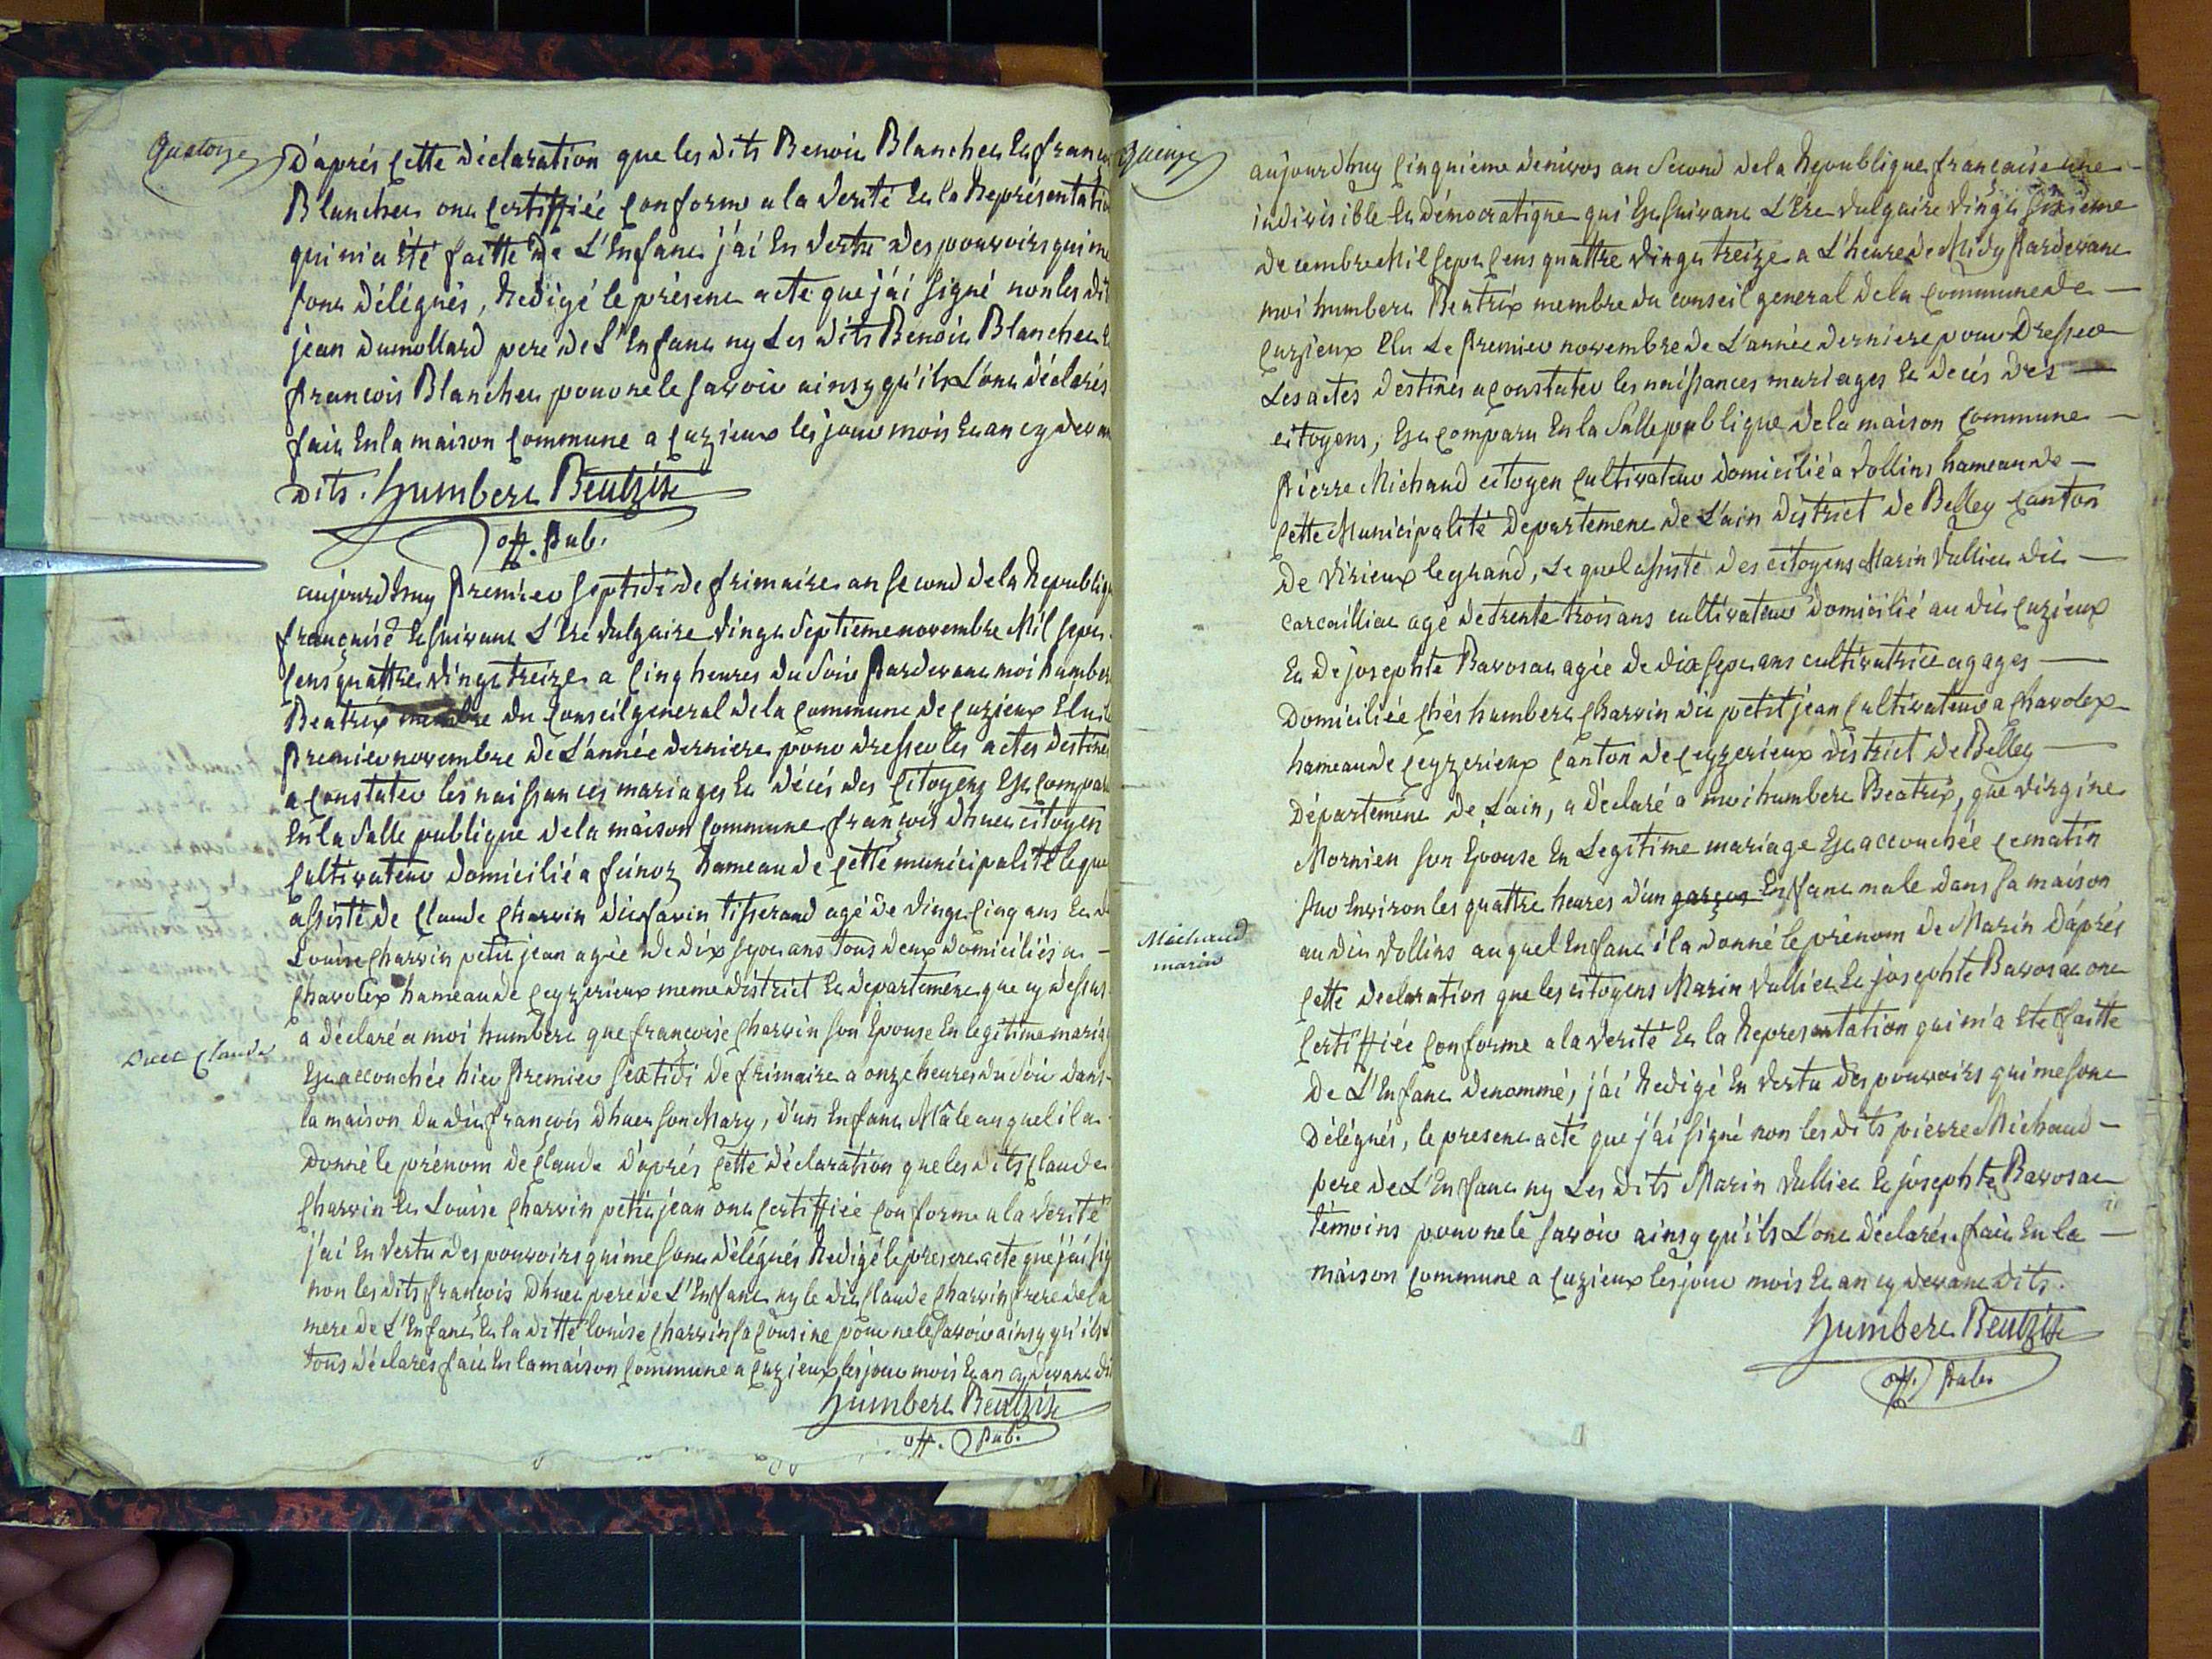 Quatorze
D'aprés Cette déclaration que les dits Benoit Blanchet Et francois
Blanchet ont Certiffiée Conforme a la Verité Et la Représentation
qui m'a Eté faitte de L'Enfant j'ai En Vertu des pouvoirs qui me
sont délégués, Redigé le présent acte que j'ai signé non les dits
jean dumollard pere de L'Enfant ny Les dits Benoit Blanchet Et
francois Blanchet pour ne le savoir ainsy qu'ils L'ont déclarés
fait En la maison Commune a Cuzieux les jour mois Et an cy devant
dits. humbert Beatrix
off. Pub.
aujourdhuy Premier septidi de frimaire an second de la Republique
française Et suivant L'Ere Vulgaire vingt septieme novembre Mil sept
Cens quattre vingt treize a Cinq heures du soir Pardevant moi humbert
Beatrix membre du Conseil general de la Commune de Cuzieux Elu le
Premier novembre de L'année derniere pour dresser les actes destinés
a Constater les naissances mariages Et décés des Citoyens Est Comparu
En la salle publique de la maison Commune françois dhuet citoyen
Cultivateur domicilié a hameau de Cette municipalité lequel
assisté de Claude Charvin dit savin tisserand agé de vingt Cinq ans Et de
Louise Charvin petit jean agée de dix sept ans tous deux domiciliés a -
Charolex hameau de Ceyzerieux meme district Et departement que cy dessus
a déclaré a moi humbert que francoise Charvin son Epouse En legitime mariage
Duet Claude
Est accouchée hier Premier sextidi de frimaire a onze heures du soir dans
la maison du dit françois dhuet son Mary, d'un Enfant Mâle auquel il a
Donné le prénom de Claude d'aprés Cette déclaration que les dits Claude
Charvin Et Louise Charvin petit jean ont Certiffiée Conforme a la Verité
j'ai En Vertu des pouvoirs qui me sont délégués Redigé le present acte que j'ai signé
non les dits françois dhuet pere de L'Enfant ny le dit Claude Charvin frere de la
mere de L'Enfant Et la ditte louise Charvin sa Cousine pour ne le savoir ainsy qu'ils
tous déclarés fait En la maison Commune a Cuzieux les jour mois Et an cy devant dits
humbert Beatrix
off. Pub.
Quinze
aujourdhuy Cinquieme de nivos an second de la Republique française une
indivisible Et démocratique qui Est suivant L'Ere Vulgaire vingt sixieme
decembre Mil sept Cens quattre vingt treize a L'heure de Midy Pardevant
moi humbert Beatrix membre du conseil general de la Commune de -
Cuzieux Elu Le Premier novembre de L'année derniere pour Dresser
Les actes destinés a constater les naissances mariages Et decés des -
citoyens, Est Comparu En la salle publique de la maison Commune -
Pierre Michaud citoyen Cultivateur domicilié a Vollins hameau de -
Cette Municipalité Departement de L'ain District de Belley Canton
de Virieux legrand, Le quel assisté des citoyens Marin Vulliet dit -
carcaillat agé de trente trois ans cultivateur domicilié au dit Cuzieux
Et de josephte Barosat agée de dix sept ans cultivatrice a gages -
Domiciliée Chés humbert Charvin dit petit jean Cultivateur a Charolex
hameau de Ceyzerieux Canton de Ceyzerieux district de Belley -
Département de Lain, a déclaré a moi humbert Beatrix, que Virgine
Mornieu son Epouse En Legitime mariage Est accouchée Ce matin
sur Environ les quattre heures d'un garçon Enfant male dans sa maison
Michaud
marin
au dit Vollins auquel Enfant il a donné le prénom de Marin D'aprés
Cette declaration que les citoyens Marin Vulliet Et josephte Barosat ont
Certiffiée Conforme a la Verité Et la Representation qui m'a Eté faitte
de L'Enfant denommé, j'ai Redigé En Vertu des pouvoirs qui me sont
Délégués, le present acte que j'ai signé non les dits pierre Michaud -
pere de L'Enfant ny Les dits Marin Vulliet Et josephte Barosat
témoins pour ne le savoir ainsy qu'ils L'ont déclarés fait En la -
maison Commune a Cuzieux les jour mois Et an cy devant dits.
humbert Beatrix
off. Pub.